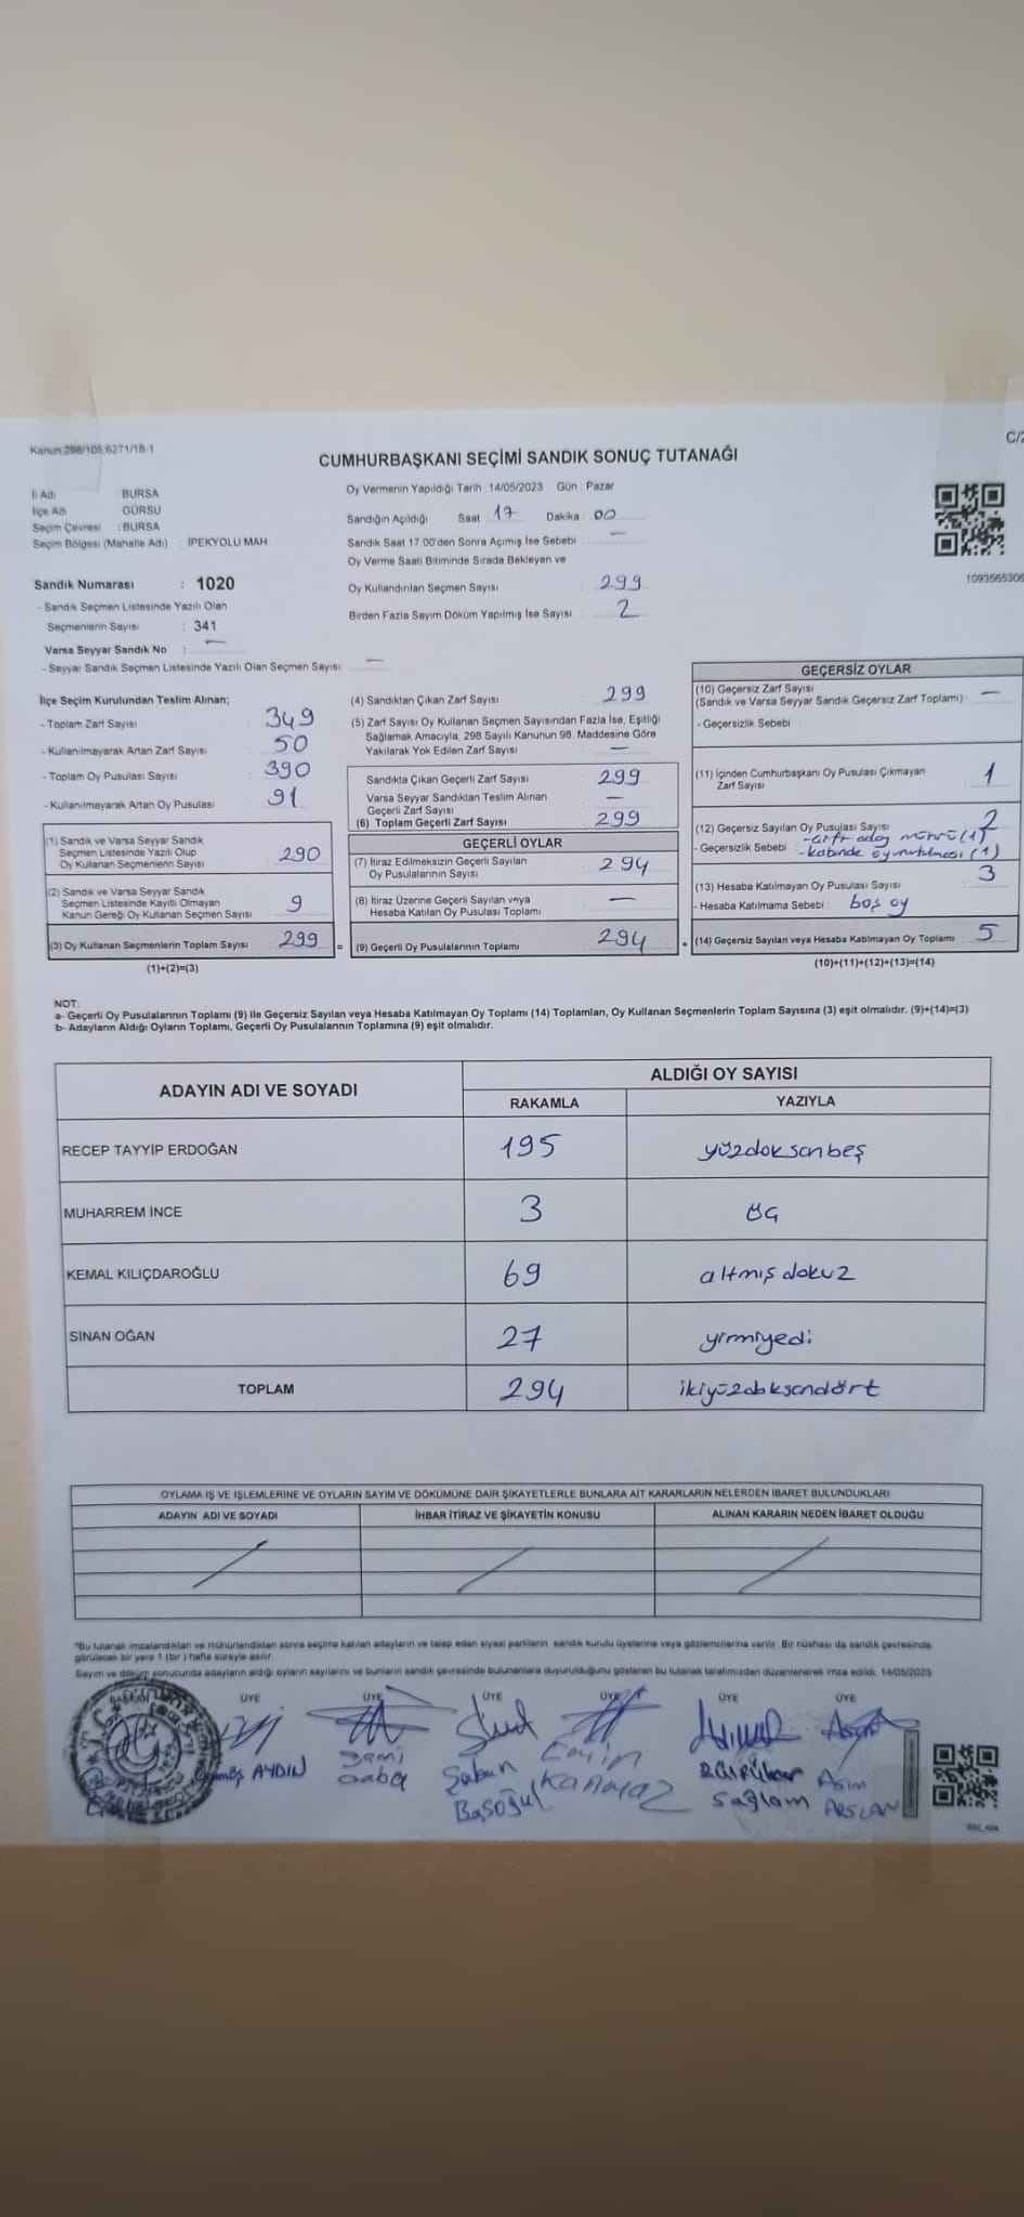 Kanun:298/105;6271/18-1
C/2
CUMHURBAŞKANI SEÇİMİ SANDIK SONUÇ TUTANAĞI
İl Adı BURSA
İlçe Adı GÜRSU
Seçim Çevresi : BURSA
Seçim Bölgesi (Mahalle Adı) İPEKYOLU MAH
Sandık Numarası : 1020
- Sandık Seçmen Listesinde Yazılı Olan
Seçmenlerin Sayısı : 341
Varsa Seyyar Sandık No : —
- Seyyar Sandık Seçmen Listesinde Yazılı Olan Seçmen Sayısı —
Oy Vermenin Yapıldığı Tarih : 14/05/2023 Gün : Pazar
Sandığın Açıldığı Saat 17 Dakika 00
Sandık Saat 17.00'den Sonra Açımış İse Sebebi —
Oy Verme Saati Bitiminde Sırada Bekleyen ve
Oy Kullandırılan Seçmen Sayısı 299
Birden Fazla Sayım Döküm Yapılmış İse Sayısı 2
1093565306
İlçe Seçim Kurulundan Teslim Alınan;
- Toplam Zarf Sayısı : 349
- Kullanılmayarak Artan Zarf Sayısı : 50
- Toplam Oy Pusulası Sayısı : 390
- Kullanılmayarak Artan Oy Pusulası : 91
(1) Sandık ve Varsa Seyyar Sandık
Seçmen Listesinde Yazılı Olup
Oy Kullanan Seçmenlerin Sayısı 290
(2) Sandık ve Varsa Seyyar Sandık
Seçmen Listesinde Kayıtlı Olmayan
Kanun Gereği Oy Kullanan Seçmen Sayısı 9
(3) Oy Kullanan Seçmenlerin Toplam Sayısı 299 =
(1)+(2)=(3)
(4) Sandıktan Çıkan Zarf Sayısı 299
(5) Zarf Sayısı Oy Kullanan Seçmen Sayısından Fazla İse, Eşitliği
Sağlamak Amacıyla, 298 Sayılı Kanunun 98. Maddesine Göre
Yakılarak Yok Edilen Zarf Sayısı —
Sandıkta Çıkan Geçerli Zarf Sayısı 299
Varsa Seyyar Sandıktan Teslim Alınan
Geçerli Zarf Sayısı —
(6) Toplam Geçerli Zarf Sayısı 299
GEÇERLİ OYLAR
(7) İtiraz Edilmeksizin Geçerli Sayılan
Oy Pusulalarının Sayısı 294
(8) İtiraz Üzerine Geçerli Sayılan veya
Hesaba Katılan Oy Pusulası Toplamı —
(9) Geçerli Oy Pusulalarının Toplamı 294 +
GEÇERSİZ OYLAR
(10) Geçersiz Zarf Sayısı
(Sandık ve Varsa Seyyar Sandık Geçersiz Zarf Toplamı) —
- Geçersizlik Sebebi :
(11) İçinden Cumhurbaşkanı Oy Pusulası Çıkmayan
Zarf Sayısı 1
(12) Geçersiz Sayılan Oy Pusulası Sayısı 2
- Geçersizlik Sebebi - çift aday mührü (1)
- kabinde oy unutulması (1)
(13) Hesaba Katılmayan Oy Pusulası Sayısı 3
- Hesaba Katılmama Sebebi : boş oy
(14) Geçersiz Sayılan veya Hesaba Katılmayan Oy Toplamı 5
(10)+(11)+(12)+(13)=(14)
NOT:
a- Geçerli Oy Pusulalarının Toplamı (9) ile Geçersiz Sayılan veya Hesaba Katılmayan Oy Toplamı (14) Toplamları, Oy Kullanan Seçmenlerin Toplam Sayısına (3) eşit olmalıdır. (9)+(14)=(3)
b- Adayların Aldığı Oyların Toplamı, Geçerli Oy Pusulalarının Toplamına (9) eşit olmalıdır.
ADAYIN ADI VE SOYADI
ALDIĞI OY SAYISI
RAKAMLA YAZIYLA
RECEP TAYYİP ERDOĞAN 195 yüzdoksanbeş
MUHARREM İNCE 3 üç
KEMAL KILIÇDAROĞLU 69 altmış dokuz
SİNAN OĞAN 27 yirmiyedi
TOPLAM 294 ikiyüzdoksandört
OYLAMA İŞ VE İŞLEMLERİNE VE OYLARIN SAYIM VE DÖKÜMÜNE DAİR ŞİKAYETLERLE BUNLARA AİT KARARLARIN NELERDEN İBARET BULUNDUKLARI
ADAYIN ADI VE SOYADI İHBAR İTİRAZ VE ŞİKAYETİN KONUSU ALINAN KARARIN NEDEN İBARET OLDUĞU
"Bu tutanak imzalandıktan ve mühürlendikten sonra seçime katılan adayların ve talep eden siyasi partilerin sandık kurulu üyelerine veya gözlemcilerine verilir. Bir nüshası da sandık çevresinde
görülecek bir yere 1 (bir) hafta süreyle asılır.
Sayım ve döküm sonucunda adayların aldığı oyların sayılarını ve bunların sandık çevresinde bulunanlara duyurulduğunu gösteren bu tutanak tarafımızdan düzenlenerek imza edildi. 14/05/2023
ÜYE ÜYE ÜYE ÜYE ÜYE ÜYE
AYDIN
Sami
Baba
Şaban
Başoğul
Emin
Kanmaz
Sağlam
Asım
ARSLAN